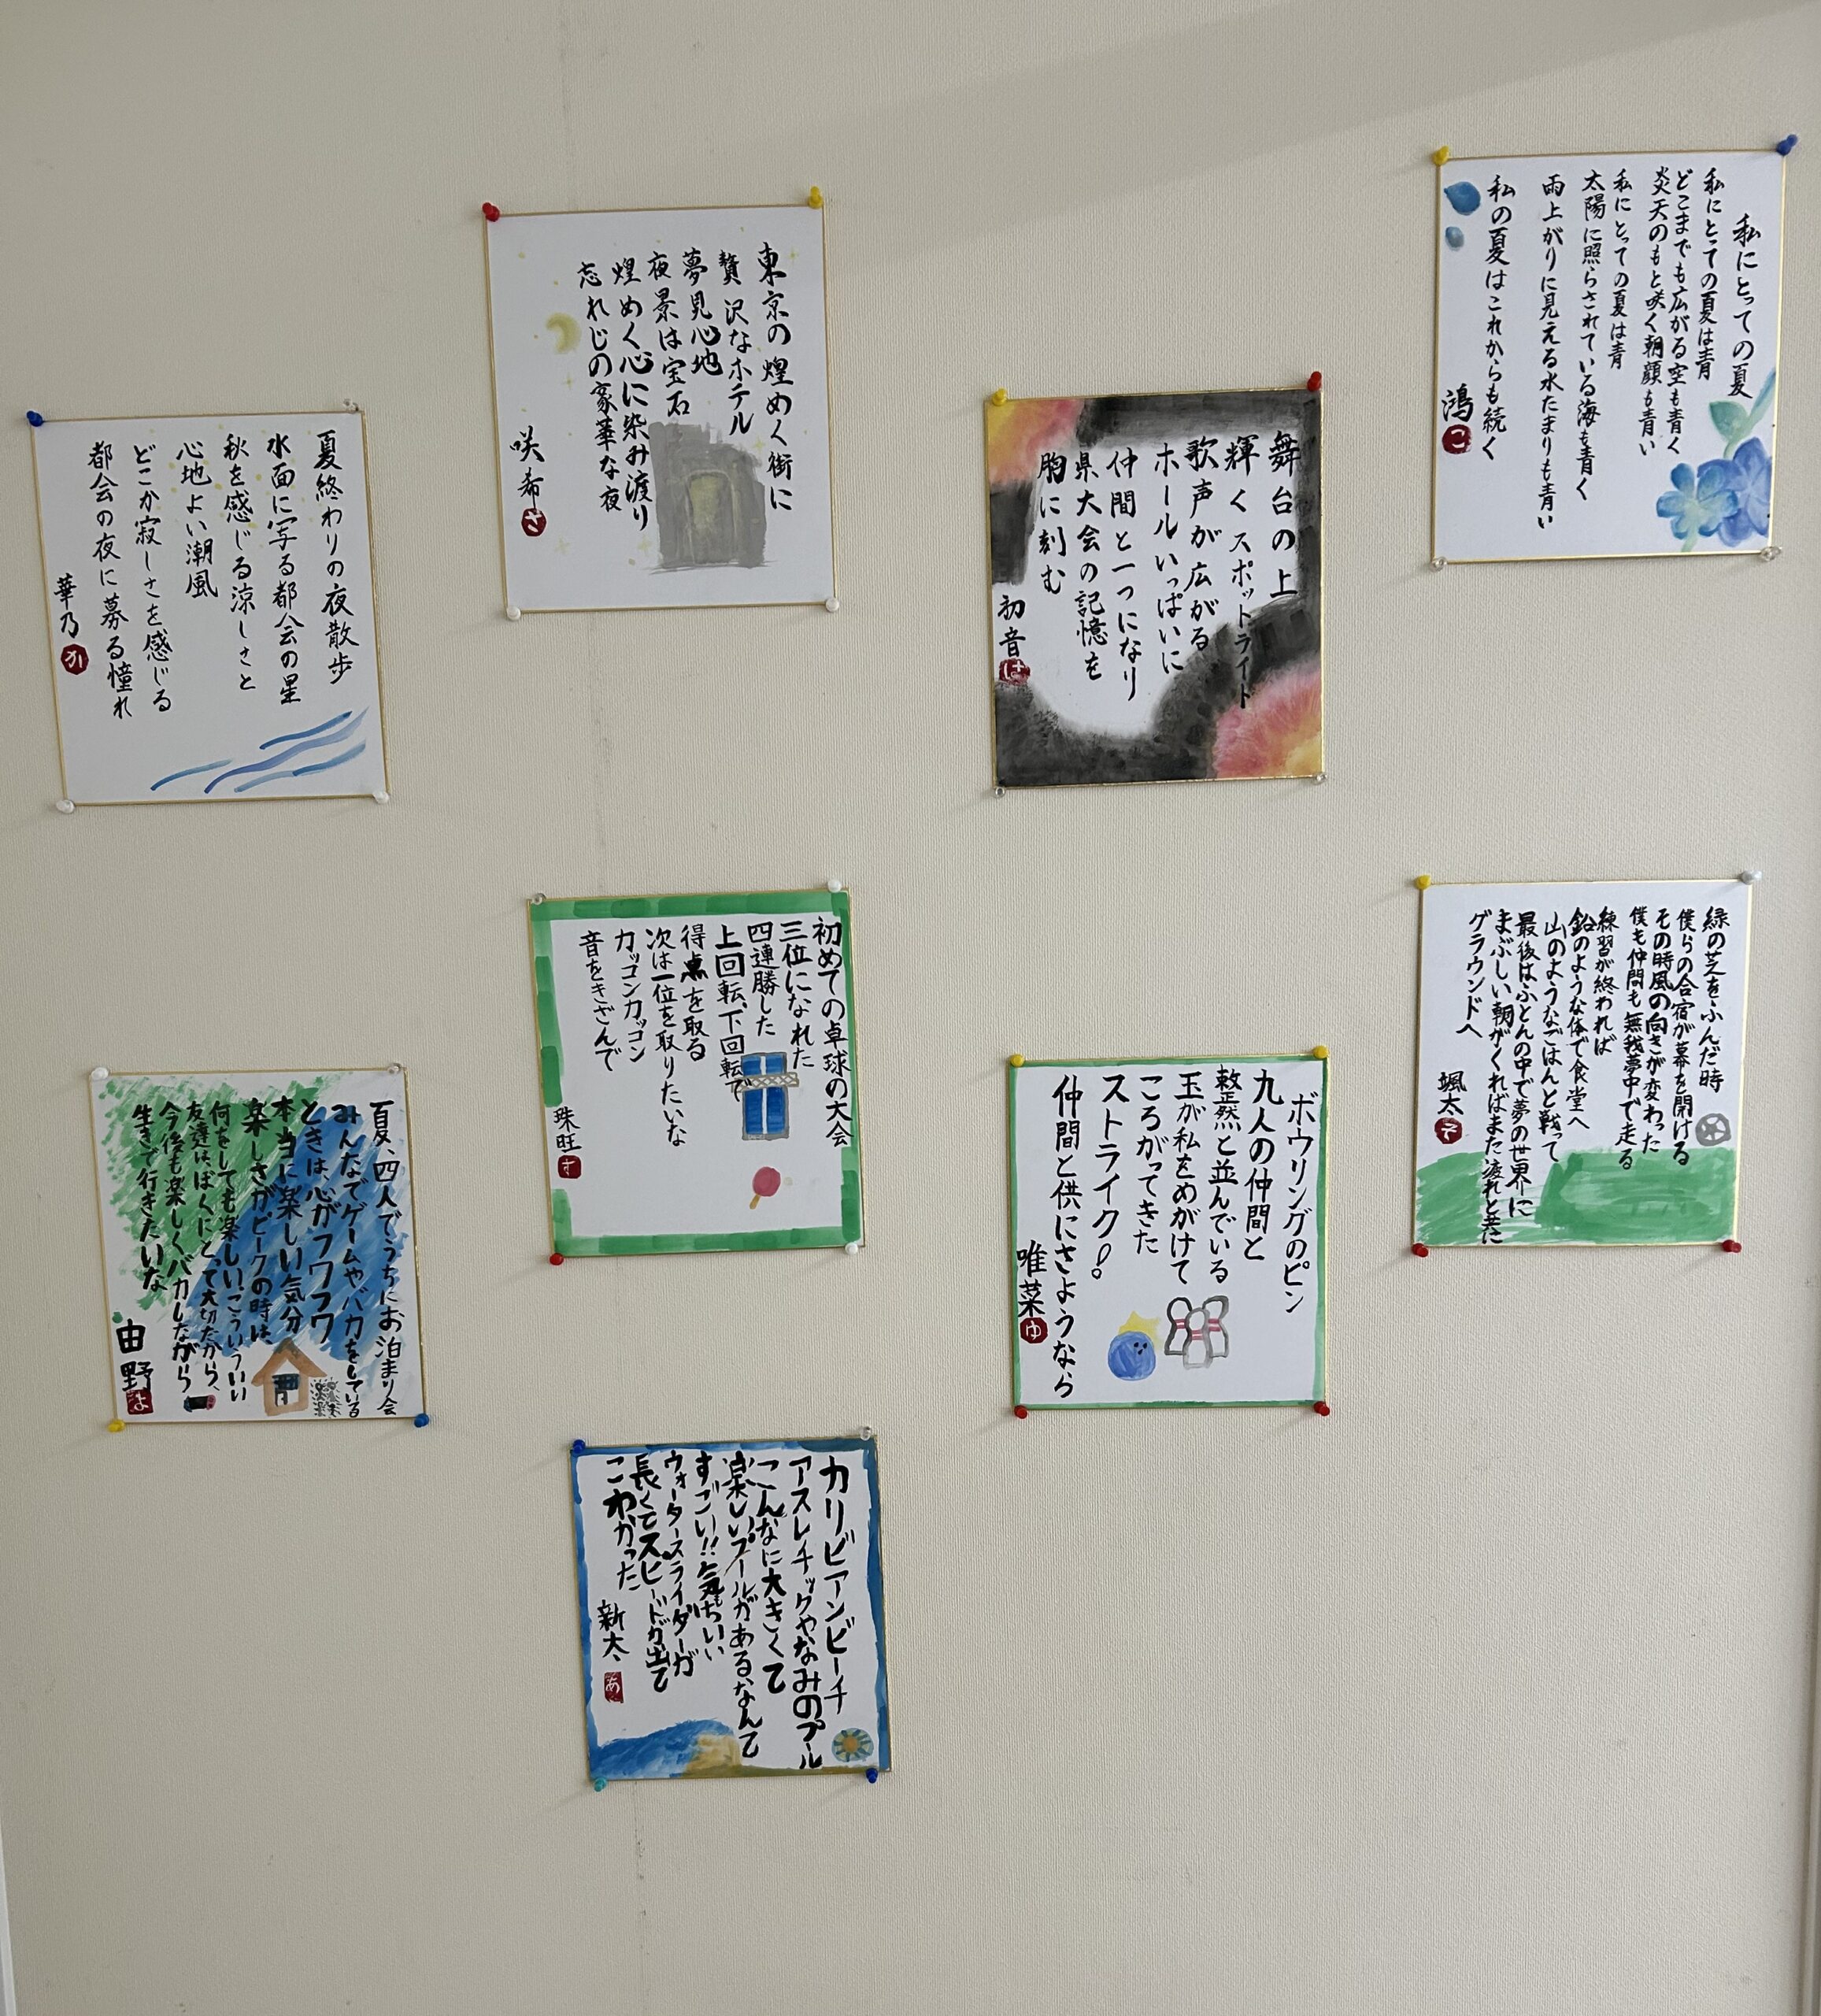 私にとっての夏
私にとっての夏は青
どこまでも広がる空も青く
炎天のもと咲く朝顔も青い
私にとっての夏は青
太陽に照らされている海も青く
雨上がりに見える水たまりも青い
私の夏はこれからも続く
鴻
こ
舞台の上
輝くスポットライト
歌声が広がる
ホールいっぱいに
仲間と一つになり
県大会の記憶を
胸に刻む
初音
は
東京の煌めく街に
贅沢なホテル
夢見心地
夜景は宝石
煌めく心に染み渡り
忘れじの豪華な夜
咲希
さ
夏終わりの夜散歩
水面に写る都会の星
秋を感じる涼しさと
心地よい潮風
どこか寂しさを感じる
都会の夜に募る憧れ
華乃
か
緑の芝をふんだ時
僕らの合宿が幕を開ける
その時風の向きが変わった
僕も仲間も無我夢中で走る
練習が終われば
鉛のような体で食堂へ
山のようなごはんと戦って
最後はふとんの中で夢の世界に
まぶしい朝がくればまた疲れと共に
グラウンドへ
颯太
そ
ボウリングのピン
九人の仲間と
整然と並んでいる
玉が私をめがけて
ころがってきた
ストライク!。
仲間と供にさようなら
唯菜
ゆ
初めての卓球の大会
三位になれた
四連勝した
上回転、下回転で
得点を取る
次は一位を取りたいな
カッコンカッコン
音をきざんで
珠旺
す
夏、四人でうちにお泊まり会
みんなでゲームやバカをしている
ときは、心がフワフワ
本当に楽しい気分
楽しさがピークの時は、
何をしても楽しい。こういういい
友達は、ぼくにとって大切だから、
今後も楽しくバカしながら
生きて行きたいな
由野
よ
カリビアンビーチ
アスレチックやなみのプール
こんなに大きくて
楽しいプールがあるなんて
すごい!!気もちいい
ウォータースライダーが
長くてスピードが出て
こわかった
新太
あ